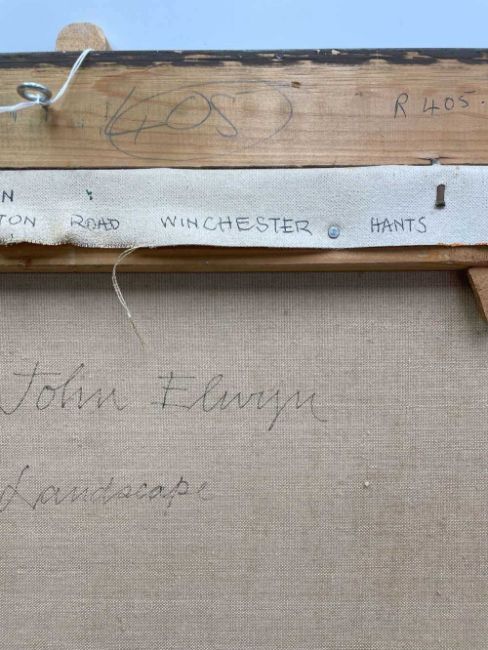 405
R 405.
N
TON ROAD WINCHESTER HANTS
John Elwyn
Landscape